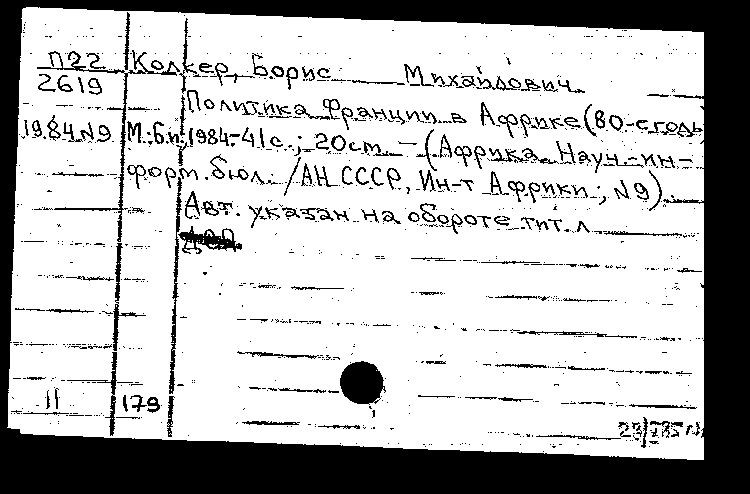 П22 Колкер, Борис Михайлович
2619
Политика Франции в Африке (80-е годы
1984 N9 М.: Б.и, 1984.-41с.; 20см. - (Африка. Науч.-ин-
форм. бюл. /АН СССР, Ин-т Африки; N9).
Авт. указан на обороте тит. л
11 179